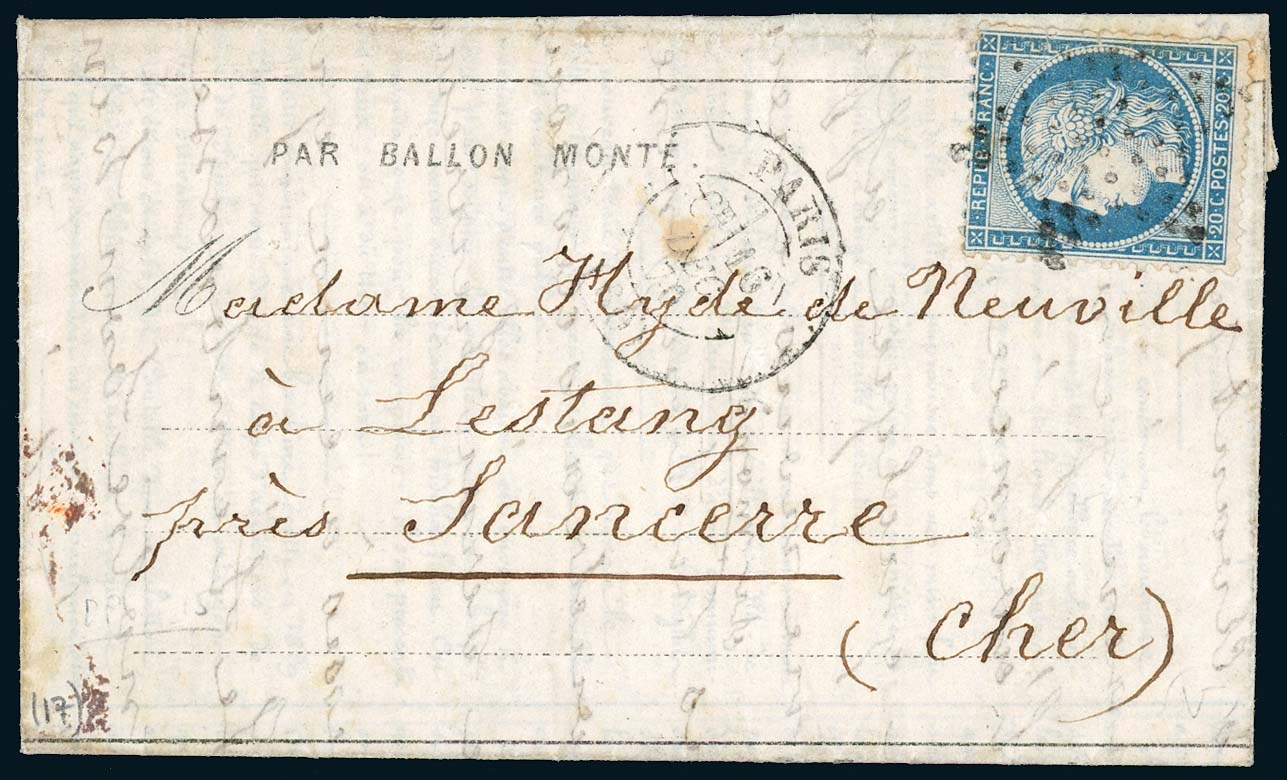 PAR BALLON MONTÉ.
PARIS
16
DEC
70
REPUB. FRANC.
20 C. POSTES 20 C
Madame Hyde de Neuville
à Lestang
près Sancerre
(Cher)
(17)